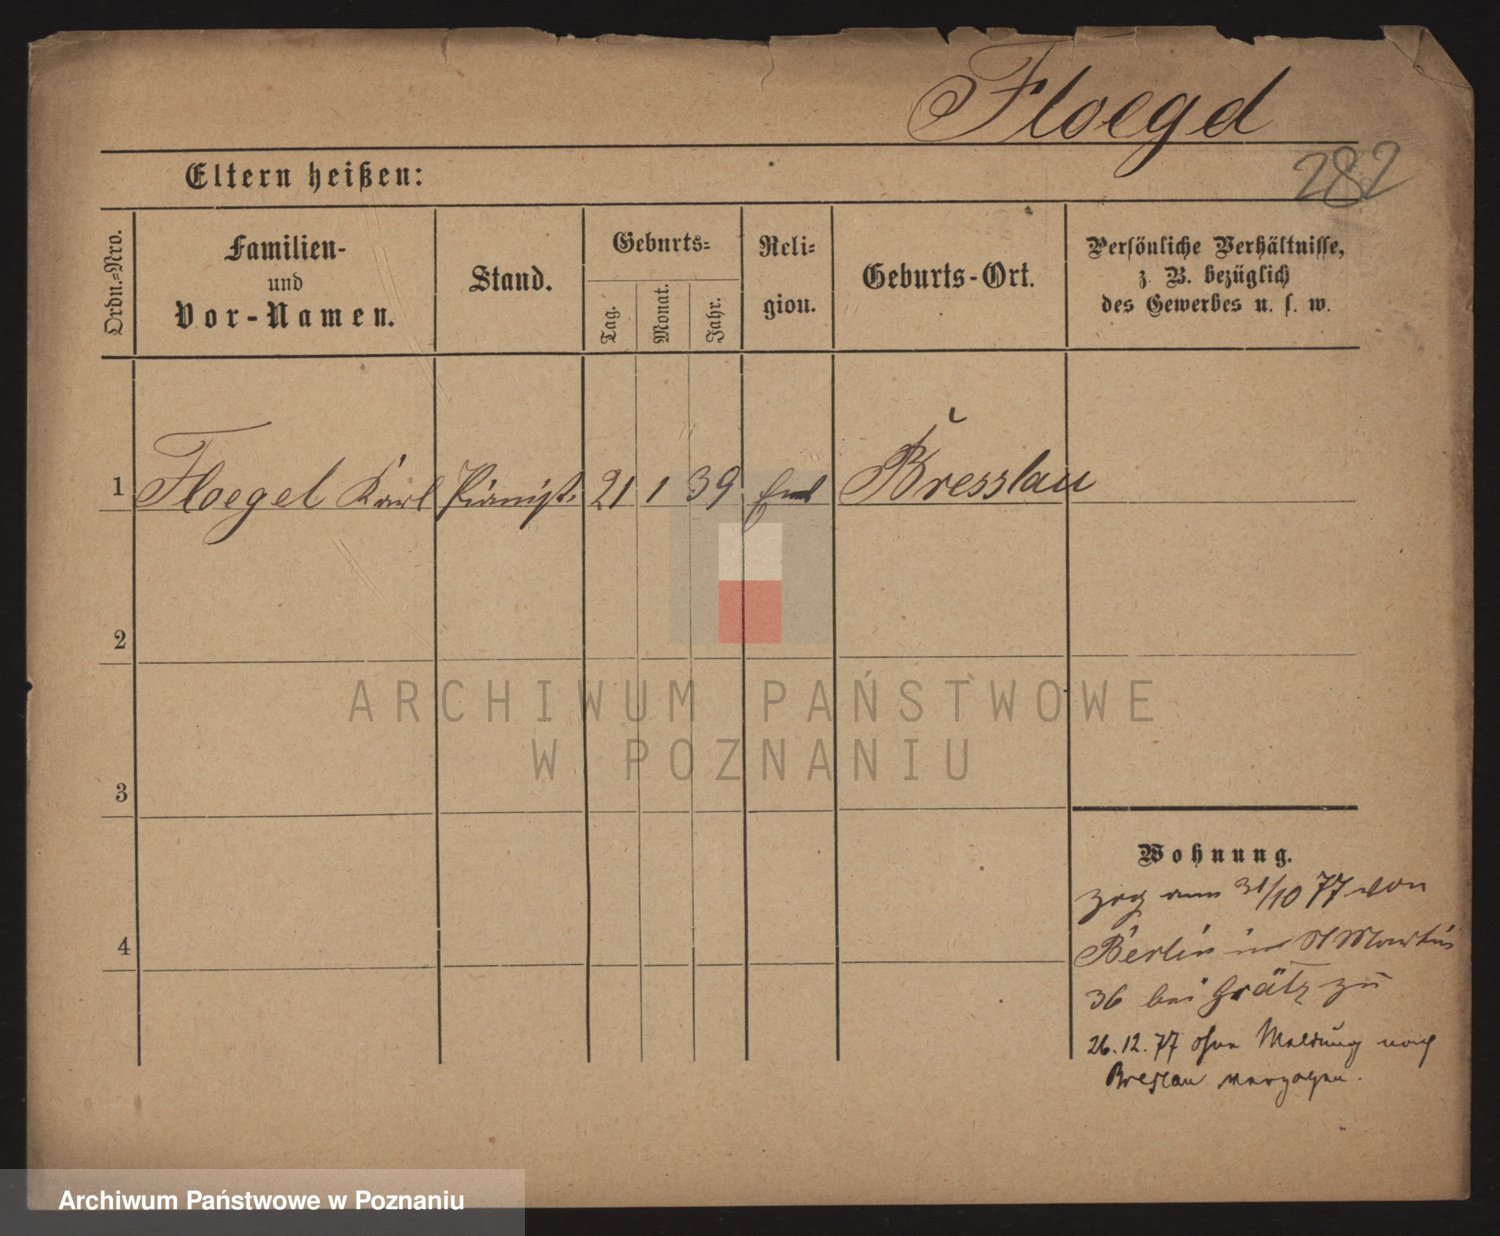 Floegel
282
Eltern heißen:
Ordn.=Nro.
Familien-
und
Vor-Namen.
Stand.
Geburts=
Tag.
Monat.
Jahr.
Reli=
gion.
Geburts-Ort.
Persönliche Verhältnisse,
z. B. bezüglich
des Gewerbes u. s. w.
1 Floegel Karl Pianist. 21 1 39 Bresslau
2
3
4
Wohnung.
zog am 31/10 77 von
Berlin in St Martin
36 bei Grätz zu
26.12.77 ohne Meldung nach
Breslau verzogen.
ARCHIWUM PAŃSTWOWE
W POZNANIU
Archiwum Państwowe w Poznaniu